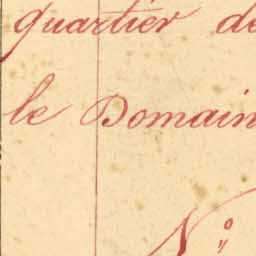 quartier de
le Domain
N°